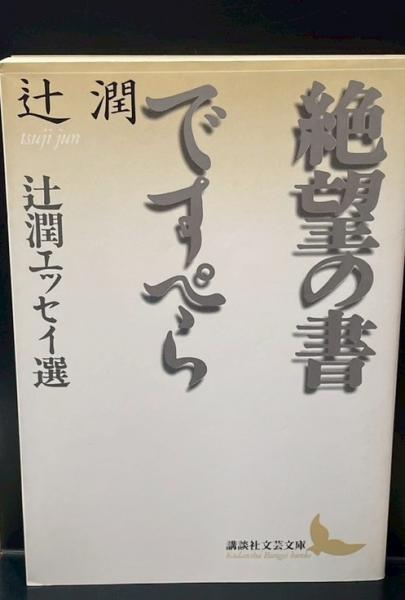 絶望の書
ですぺら
辻潤
tsuji jun
辻潤エッセイ選
講談社文芸文庫
Kodansha Bungei bunko